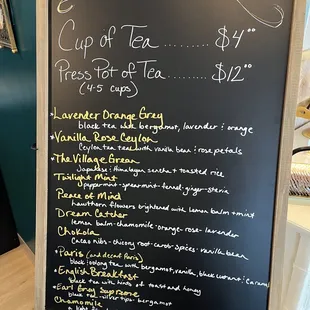 Cup of Tea ......... $4⁰⁰
Press Pot of Tea ........ $12⁰⁰
(4-5 cups)
*Lavender Orange Grey
black tea with bergamot, lavender & orange
*Vanilla Rose Ceylon
Ceylon tea with vanilla bean & rose petals
*The Village Green
Japanese & Himalayan sencha + toasted rice
Twilight Mint
peppermint - spearmint - fennel - ginger - stevia
Peace of Mind
hawthorn flowers brightened with lemon balm + mint
Dream Catcher
lemon balm - chamomile - orange - rose - lavender
Chokola
Cacao nibs - chicory root - carob - spices - vanilla bean
*Paris (and decaf Paris)
black & oolong tea with bergamot, vanilla, black currant & caramel
*English Breakfast
black tea with hints of toast and honey
*Earl Grey Supreme
black tea - silver tips - bergamot
Chamomile